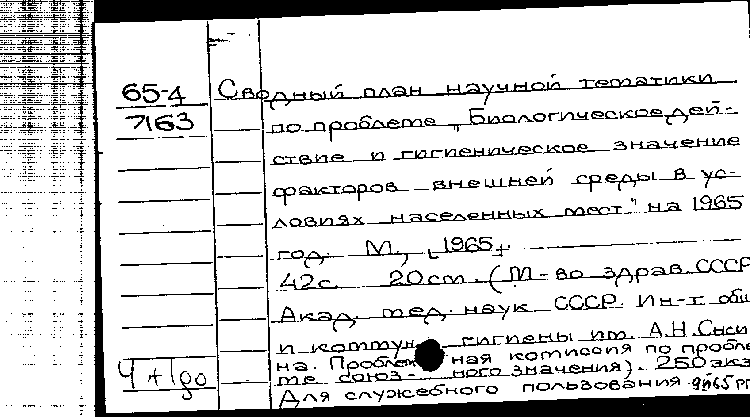 65-4 Сводный план научной тематики
7163 по проблеме "Биологическое дей-
ствие и гигиеническое значение
факторов внешней среды в ус-
ловиях населенных мест" на 1965
год. М., [1965].
42 с. 20 см. (М-во здрав. СССР
Акад. мед. наук СССР. Ин-т общ
и коммун. гигиены им. А.Н. Сыси
на. Проблемная комиссия по пробле
ме союз- ного значения). 250 экз
Для служебного пользования